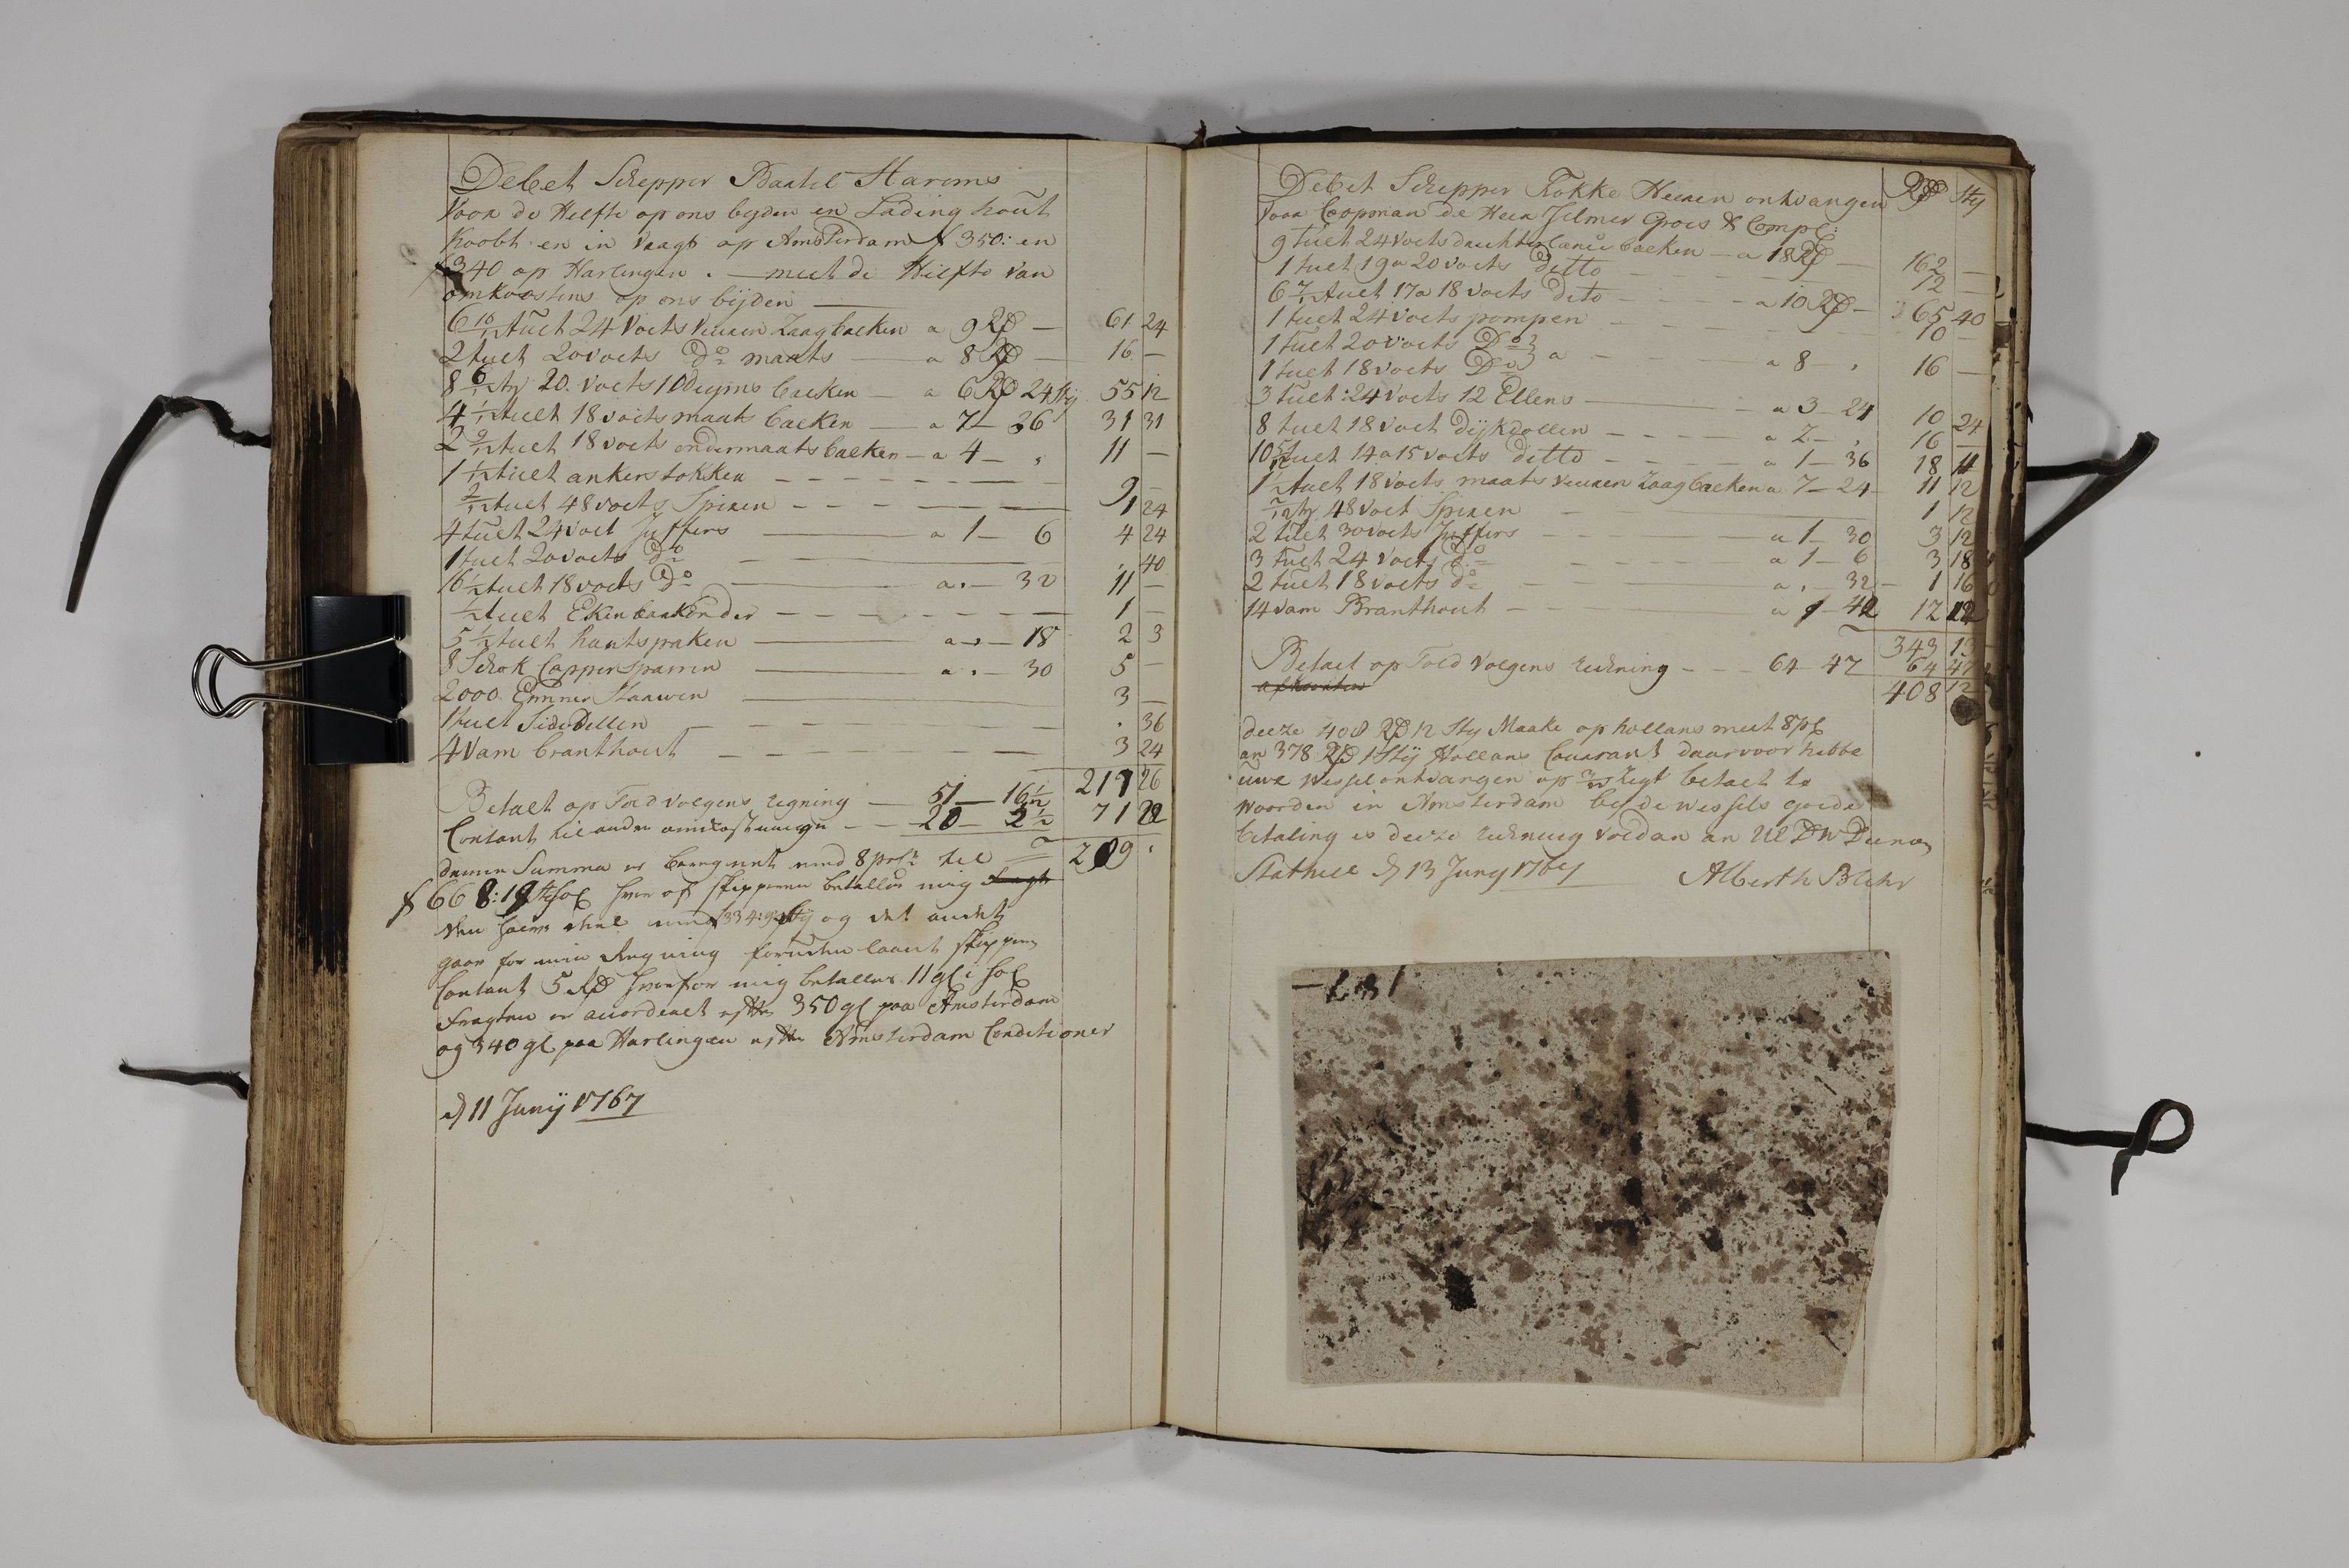 Debet Schepper Bartel Harems
Voor de Helfte op ons byden en Lading hout
koobt en in vragt op Amsterdam f 350: en
f 340 op Harlingen. — meet de Hielfte van
omkoostens op ons bijden —
6 10/12 tuelt 24 Voets Zaagbaeken — a 9 Rd — 61 24
2 tuelt 20 voets Do maats — a 8 Rd — 16 —
8 6/12 ty 20 Voets 10 Duyms baeken — a 6 Rd 24 sty 55 12
4 1/12 tuelt 18 voets maats baeken — a 7 — 36 31 31
2 9/12 tuelt 18 voets ondermaats baeken — a 4 — , 11 —
1 1/12 tuelt ankerstokken — 9 —
2/12 tuelt 48 voets Spiren — 1 24
4 tuelt 24 voet Juffers — a 1 — 6 4 24
1 tuelt 20 voets do — . 40
16 1/2 tuelt 18 voets Do — a . — 32 11 —
1/2 tuelt Eken — 1 —
5 1/2 tuelt hantspaken — a . — 18 2 3
8 Schok Capper Sparren — a . — 30 5 —
2000 Emmer Staawen — 3 —
1 tuelt Sidedellen — . 36
4 Vam branthout — 3 24
217 26
Betalt op Told volgens regning — 51 — 16 1/2
Contant til andre omkostninger — 20 — 2 1/2 71 22
denne Summa er beregnet med 8 pct til 289 .
f 668:19 hvor af skipperen betaller mig
den halve deel med f 334: og det andet
gaar for min Regning foruden laant skipperen
Contant 5 Rd hvorfor mig betalles 11 gl i hol
fragten er accorderet efter 350 gl paa Amsterdam
og 340 gl paa Harlingen efter Amsterdam Conditioner
d 11 Junij 1767
Debet Schepper Fokke Heeren ontvangen Rd Sty
Voor Coopman de Heer Jelmer Groes & Comp:
9 tuelt 24 voets baeken — a 18 Rd — 162 —
1 tuelt 19 a 20 voets ditto — 12 —
6 7/12 tuelt 17 a 18 voets dito — a 10 Rd — 65 40
1 tuelt 24 voets pompen — 10 —
1 tuelt 20 voets Do
1 tuelt 18 voets Do a — a 8 — . 16 —
3 tuelt: 24 voets 12 Ellens — a 3 — 24 10 24
8 tuelt 18 voet dijkdollen — a 2 — , 16 —
10 5/12 tuelt 14 a 15 voets ditto — a 1 — 36 18 11
1 1/2 tuelt 18 voets maats Zaagbaeken a 7 — 24 — 11 12
7/12 ty 48 voet Spiren — 1 12
2 tuelt 30 voets Juffers — a 1 — 30 3 12
3 tuelt 24 Voets do — a 1 — 6 3 18
2 tuelt 18 voets do — a . — 32 — 1 16
14 vam Branthout — a 42 12 12
343 13
Betaet op Told volgens rekning — 64 47 64 47
408 12
deeze 408 Rd 12 Sty Maake op hollans meet 8 pC
an 378 Rd 1 Sty Hollans Courant daarvoor hebbe
uwe Wessel ontvangen op Zigt betaelt te
woorden in Amsterdam by de wessels goede
betaling is deeze rekning voldan an UE DW Diener
Stathelle d 13 Juny 1767 Alberth Blehr